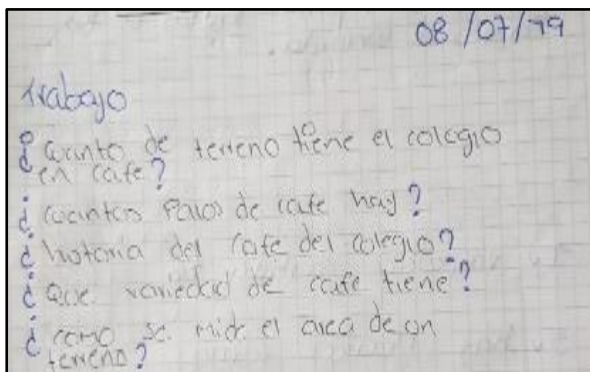 08/07/19
trabajo
¿ cuanto de terreno tiene el colegio
en cafe?
¿ cuantos palos de cafe hay?
¿ historia del cafe del colegio?
¿ Que variedad de cafe tiene?
¿ como se mide el area de un
terreno?